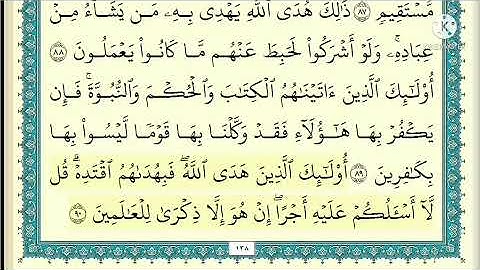 مُّسْتَقِيمٍ ٨٧ ذَٰلِكَ هُدَى ٱللَّهِ يَهْدِى بِهِۦ مَن يَشَآءُ مِنْ
عِبَادِهِۦ ۚ وَلَوْ أَشْرَكُوا۟ لَحَبِطَ عَنْهُم مَّا كَانُوا۟ يَعْمَلُونَ ٨٨
أُو۟لَٰٓئِكَ ٱلَّذِينَ ءَاتَيْنَٰهُمُ ٱلْكِتَٰبَ وَٱلْحُكْمَ وَٱلنُّبُوَّةَ ۚ فَإِن
يَكْفُرْ بِهَا هَٰٓؤُلَآءِ فَقَدْ وَكَّلْنَا بِهَا قَوْمًا لَّيْسُوا۟ بِهَا
بِكَٰفِرِينَ ٨٩ أُو۟لَٰٓئِكَ ٱلَّذِينَ هَدَى ٱللَّهُ ۖ فَبِهُدَىٰهُمُ ٱقْتَدِهْ ۗ قُل
لَّآ أَسْـَٔلُكُمْ عَلَيْهِ أَجْرًا ۖ إِنْ هُوَ إِلَّا ذِكْرَىٰ لِلْعَٰلَمِينَ ٩٠
١٣٨